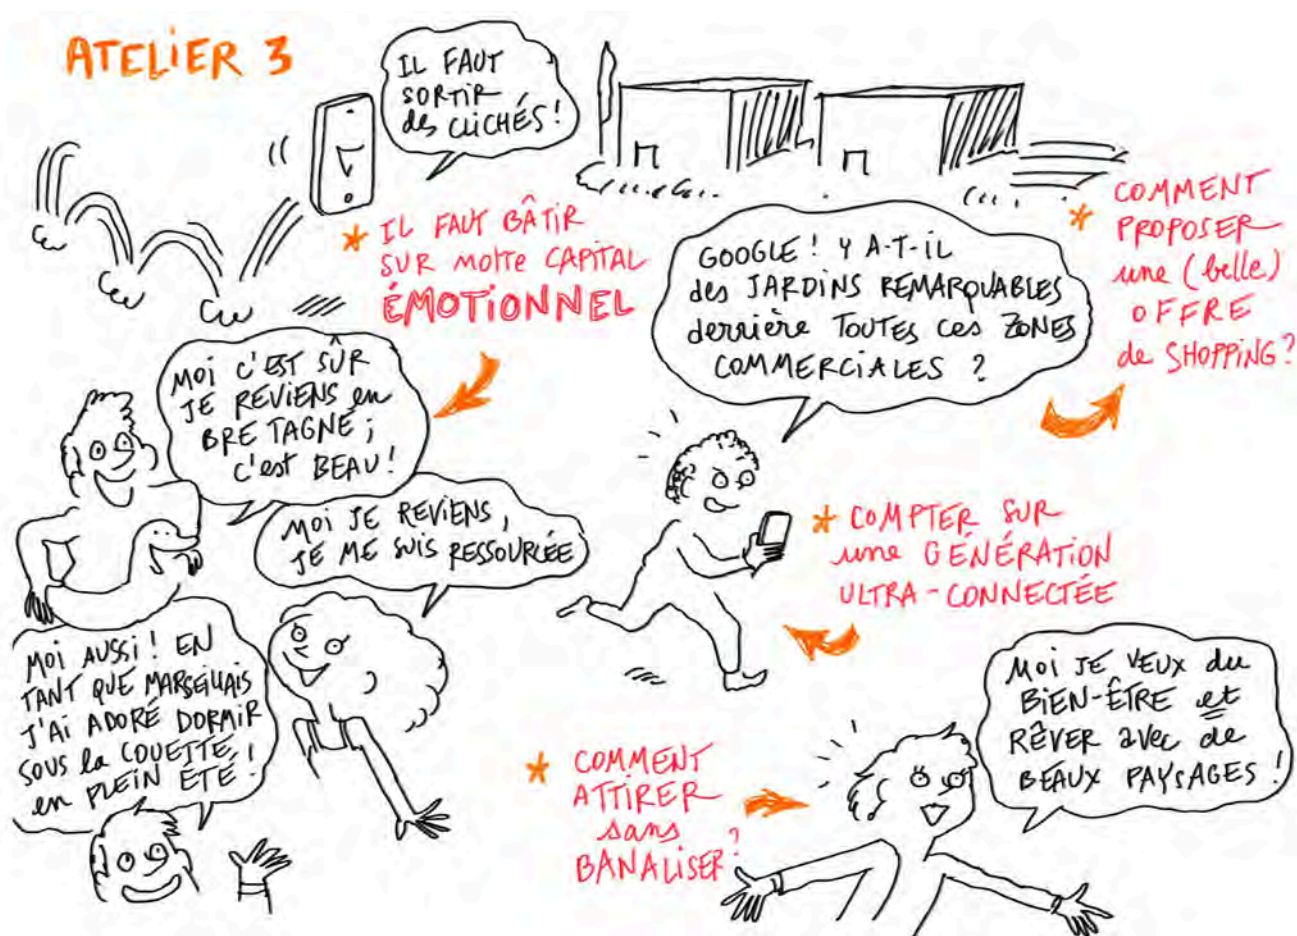 ATELIER 3
IL FAUT
SORTIR
des CLICHÉS !
* IL FAUT BÂTIR
SUR motte CAPITAL
ÉMOTIONNEL
* COMMENT
PROPOSER
une (belle)
OFFRE
de SHOPPING ?
GOOGLE ! Y A-T-IL
des JARDINS REMARQUABLES
derrière TOUTES ces ZONES
COMMERCIALES ?
MOI C'EST SÛR
JE REVIENS en
BRETAGNE ;
c'est BEAU !
MOI JE REVIENS,
JE ME SUIS RESSOURCÉE
* COMPTER SUR
une GÉNÉRATION
ULTRA-CONNECTÉE
MOI AUSSI ! EN
TANT QUE MARSEILLAIS
J'AI ADORÉ DORMIR
SOUS la COUETTE,
en PLEIN ÉTÉ !
* COMMENT
ATTIRER
sans
BANALISER ?
MOI JE VEUX du
BIEN-ÊTRE et
RÊVER avec de
BEAUX PAYSAGES !